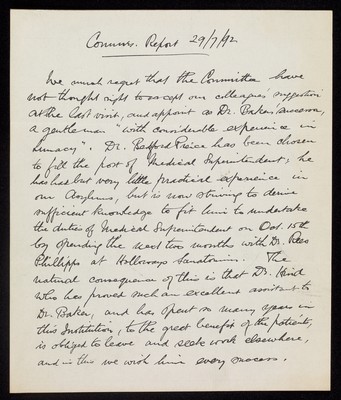 Commrs. Report 29/7/92
We much regret that the Committee have
not thought right to accept our colleagues' suggestion
at the last visit, and appoint as Dr. Baker's successor,
a gentleman "with considerable experience in
Lunacy". Dr. Bedford Pierce has been chosen
to fill the post of Medical Superintendent; he
has had but very little practical experience in
our Asylums, but is now striving to derive
sufficient knowledge to fit him to undertake
the duties of Medical Superintendent on Oct. 15th
by spending the next two months with Dr. Rees
Philipps at Holloways Sanatorium. The
natural consequence of this is that Dr. Hind
who has proved such an excellent assistant to
Dr. Baker, and has spent so many years in
this Institution, to the great benefit of the patients,
is obliged to leave and seek work elsewhere,
and in this we wish him every success.